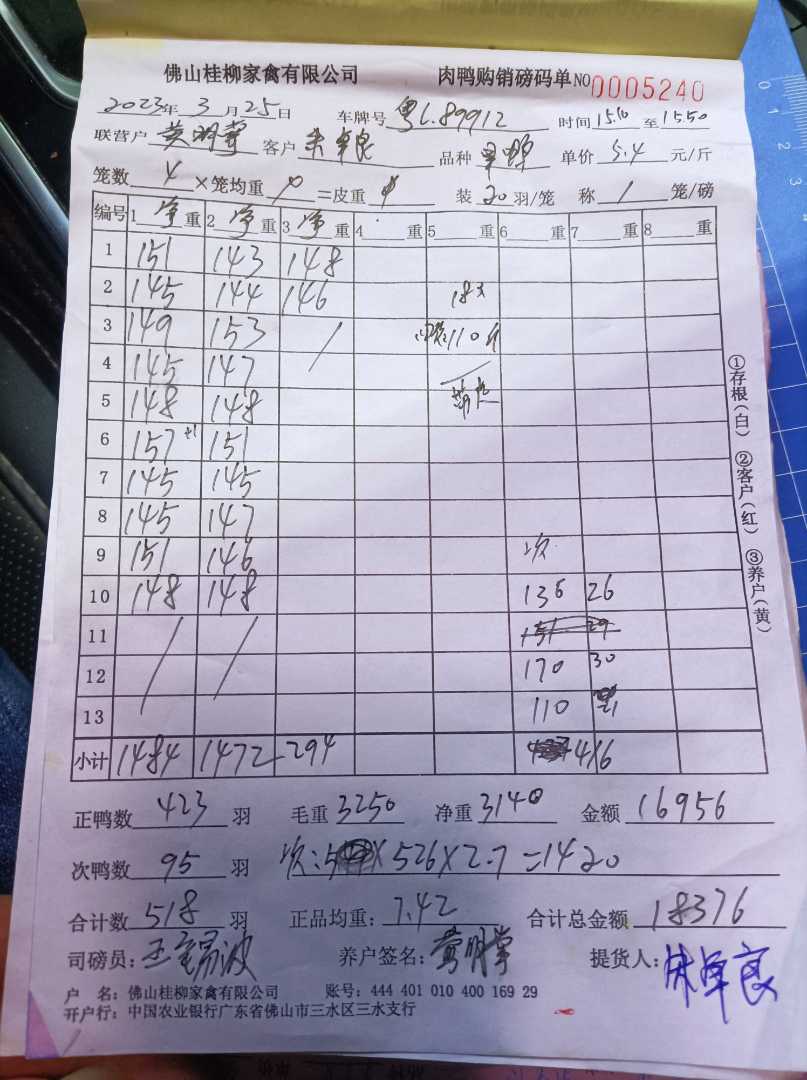 佛山桂柳家禽有限公司 肉鸭购销磅码单 NO 0005240
2023年 3月25日 车牌号 粤L.89912 时间 15.10 至 15.50
联营户 黄明掌 客户 单价 5.4 元/斤 品种
笼数 4 ×笼均重 0 =皮重 装 20 羽/笼 称 1 笼/磅
编号 1 净 重 2 净 重 3 净 重 4 重 5 重 6 重 7 重 8 重
1 151 143 148
2 145 144 146 18只
3 149 153 / 110斤
4 145 147
5 148 148
6 157 +1 151
7 145 145
8 145 147
9 151 146 次
10 148 148 136 26
11 / / 151 29
12 170 30
13 110
小计 1484 1472 294 416
正鸭数 423 羽 毛重 3250 净重 3140 金额 16956
次鸭数 95 羽 次: ×526×2.7=1420
合计数 518 羽 正品均重: 7.42 合计总金额 18376
司磅员: 养户签名: 黄明掌 提货人:
户 名: 佛山桂柳家禽有限公司 账号: 444 401 010 400 169 29
开户行: 中国农业银行广东省佛山市三水区三水支行
①存根(白) ②客户(红) ③养户(黄)